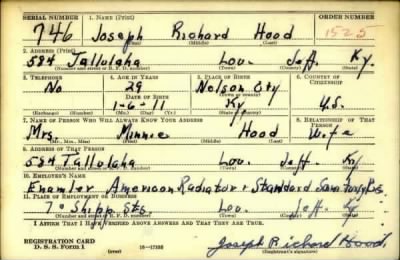 SERIAL NUMBER 1. NAME (Print) ORDER NUMBER
746 Joseph Richard Hood 1525
(First) (Middle) (Last)
2. ADDRESS (Print)
584 Tallulaha Lou. Jeff. Ky.
(Number and street or R. F. D. number) (Town) (County) (State)
3. TELEPHONE 4. AGE IN YEARS 5. PLACE OF BIRTH 6. COUNTRY OF CITIZENSHIP
No 29 Nelson Cty
DATE OF BIRTH (Town or county)
1-6-11 Ky U.S.
(Exchange) (Number) (Mo.) (Day) (Yr.) (State or country)
7. NAME OF PERSON WHO WILL ALWAYS KNOW YOUR ADDRESS 8. RELATIONSHIP OF THAT PERSON
Mrs. Minnie Hood Wife
(Mr., Mrs., Miss) (First) (Middle) (Last)
9. ADDRESS OF THAT PERSON
584 Tallulaha Lou. Jeff. Ky
(Number and street or R. F. D. number) (Town) (County) (State)
10. EMPLOYER'S NAME
Enamler American Radiator + Standard
11. PLACE OF EMPLOYMENT OR BUSINESS
7th Shipp Sts. Lou. Jeff. Ky
(Number and street or R. F. D. number) (Town) (County) (State)
I AFFIRM THAT I HAVE VERIFIED ABOVE ANSWERS AND THAT THEY ARE TRUE.
REGISTRATION CARD
D. S. S. Form 1 (over) 16-17105 Joseph Richard Hood
(Registrant's signature)